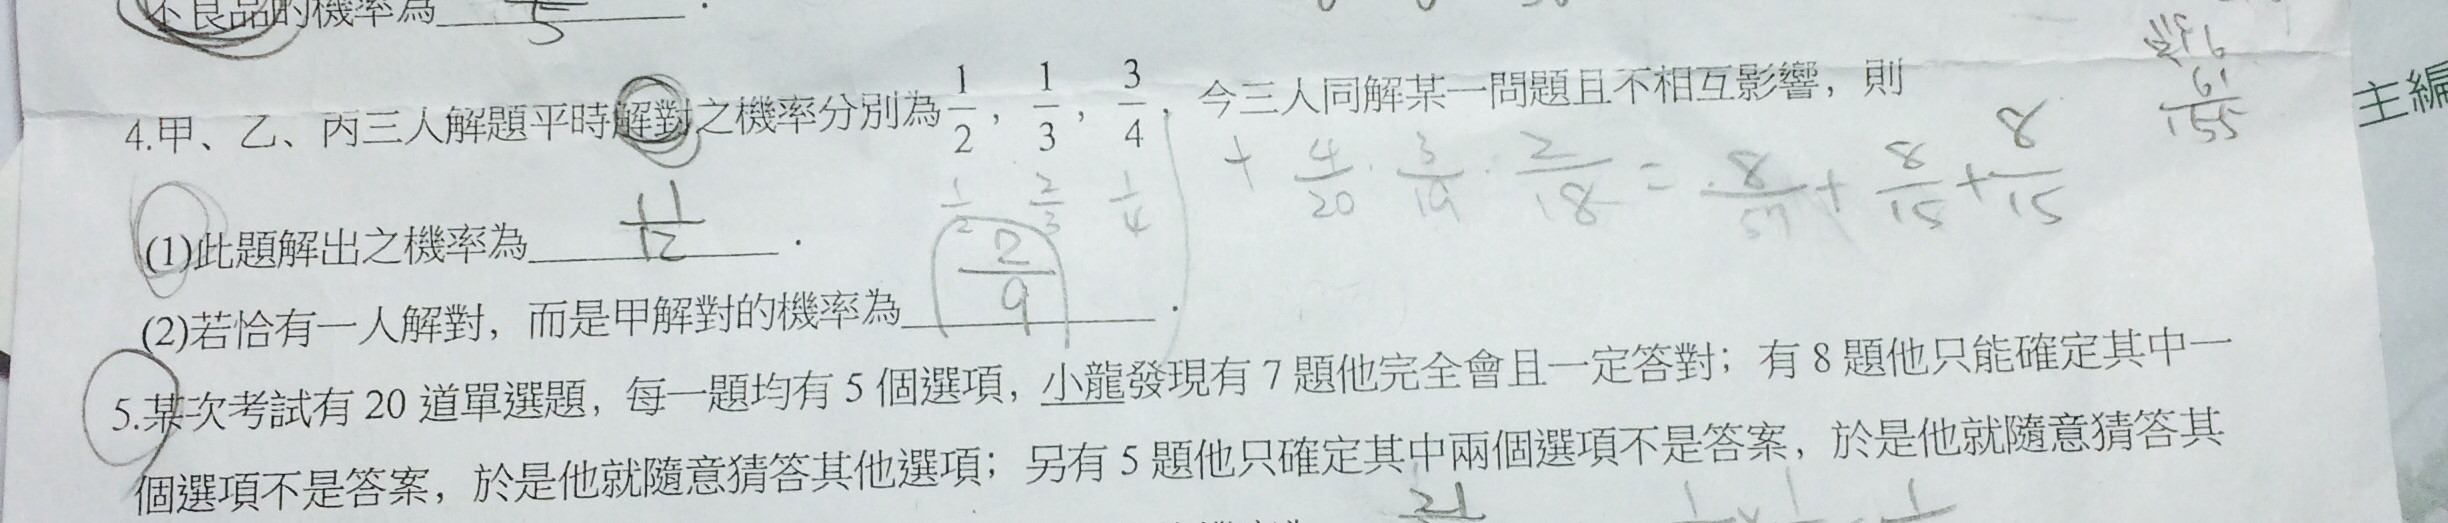 不良品的機率為 .
4.甲、乙、丙三人解題平時解對之機率分別為 1/2, 1/3, 3/4. 今三人同解某一問題且不相互影響, 則
+ 4/20 · 3/19 · 2/18 = 8/57 + 8/15 + 8/15
19
155
主編
1/2 2/3 1/4
(1)此題解出之機率為 11/12 .
(2)若恰有一人解對, 而是甲解對的機率為 2/9 .
5.某次考試有 20 道單選題, 每一題均有 5 個選項, 小龍發現有 7 題他完全會且一定答對; 有 8 題他只能確定其中一
個選項不是答案, 於是他就隨意猜答其他選項; 另有 5 題他只確定其中兩個選項不是答案, 於是他就隨意猜答其
21